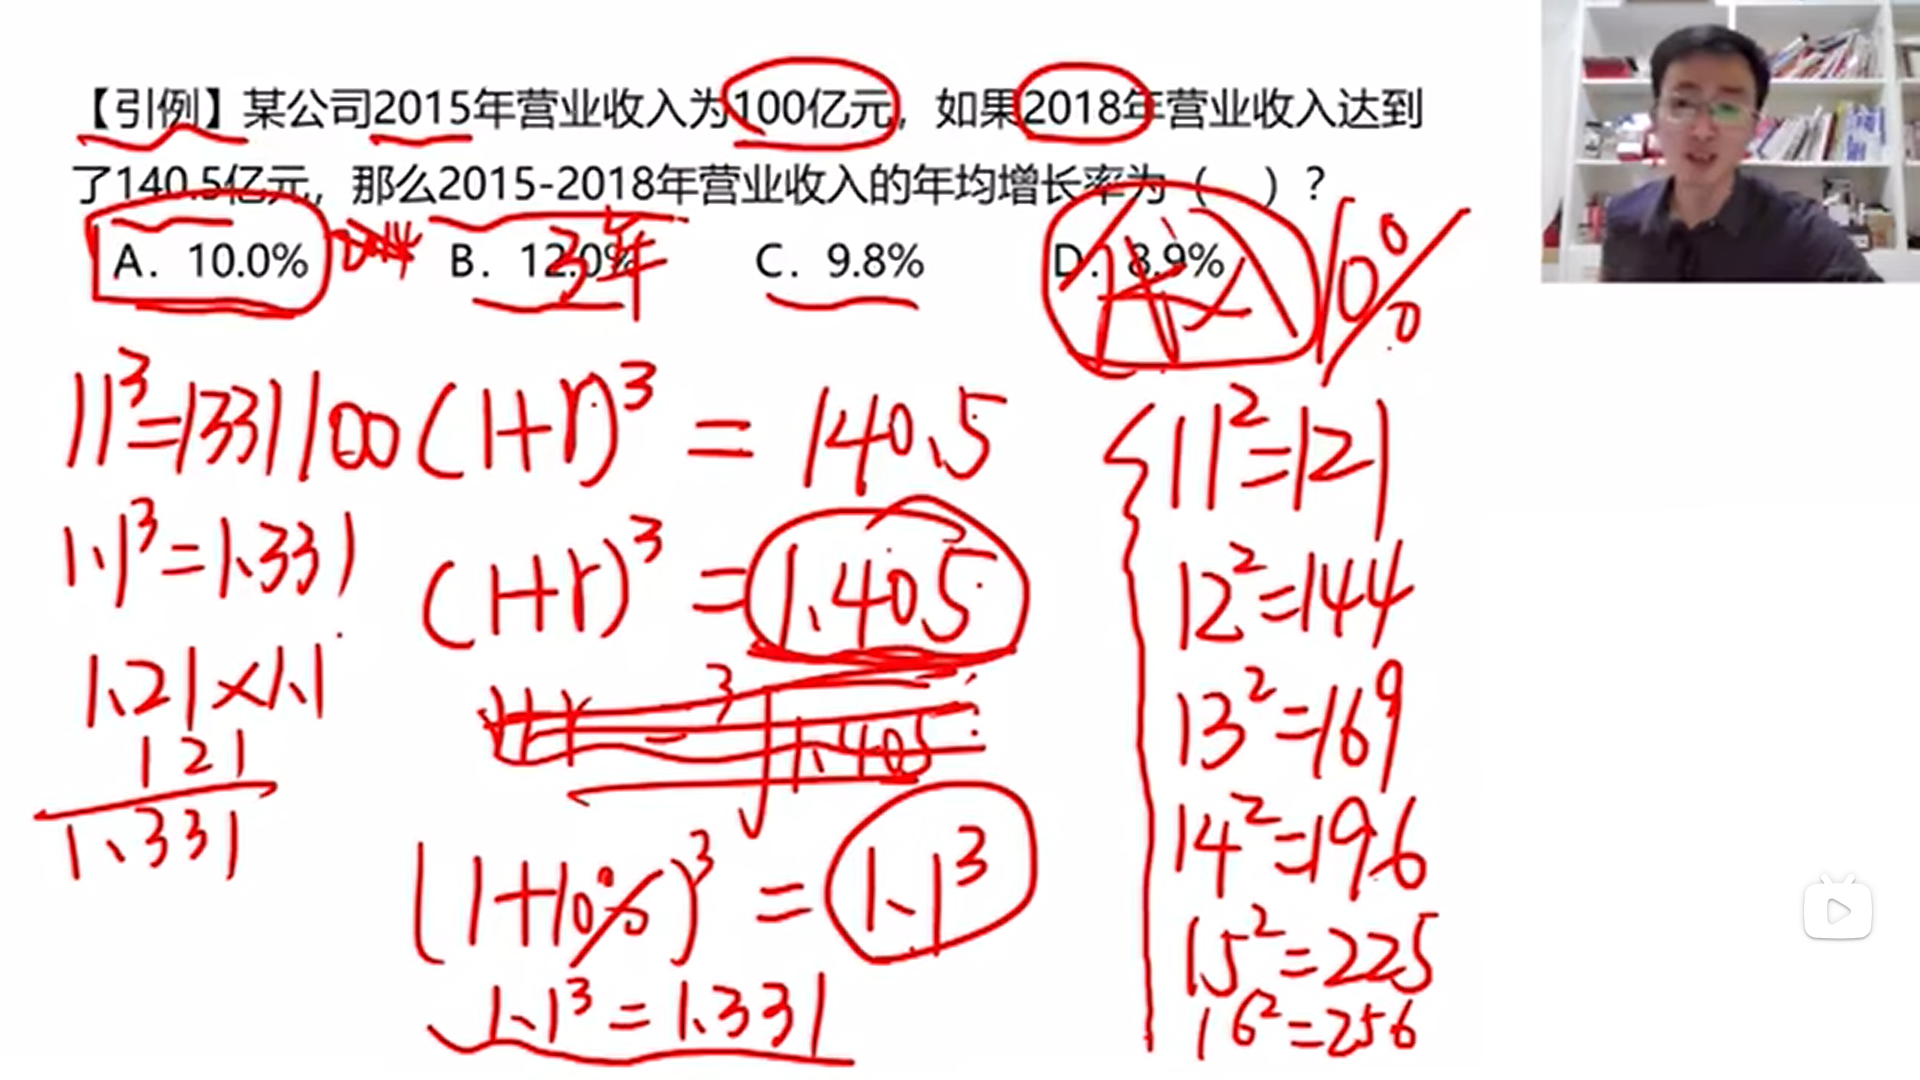 【引例】某公司2015年营业收入为100亿元，如果2018年营业收入达到
了140.5亿元，那么2015-2018年营业收入的年均增长率为（ ）？
A. 10.0% B. 12.0% C. 9.8% D. 8.9%
3年
代入
10%
11³=1331
100(1+r)³ = 140.5
1.1³=1.331
(1+r)³ = 1.405
1.21×1.1
121
1.331
1+r = ³√1.405
(1+10%)³ = 1.1³
1.1³ = 1.331
11²=121
12²=144
13²=169
14²=196
15²=225
16²=256